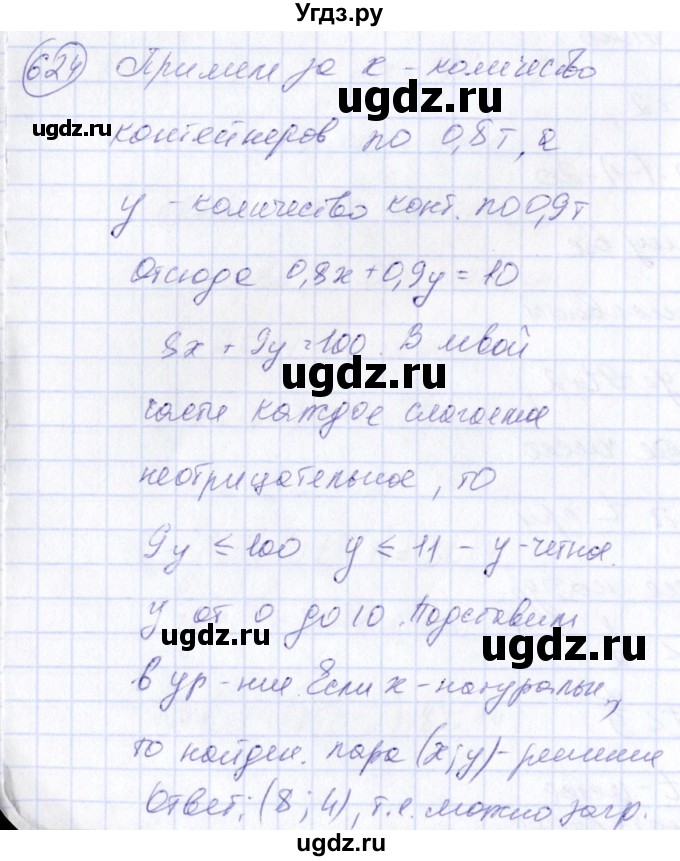 Угдз.ру
624 Примем за x - количество
www.ugdz.ru
ugdz.ru
контейнеров по 0,8т, а
y - количество конт. по 0,9т
ugdz.ru
Отсюда 0,8x+0,9y = 10
8x + 9y = 100. В левой
ugdz.ru
части каждое слагаемое
неотрицательное, то
ugdz.ru
9y ≤ 100 y ≤ 11 - y-четна.
y от 0 до 10. Подставим
ugdz.ru
ugdz.ru
в ур-ние. Если x-натуральн,
то найден. пара (x;y)-решение
ugdz.ru
Ответ: (8; 4), т.е. можно загр.
ugdz.ru
ugdz.ru